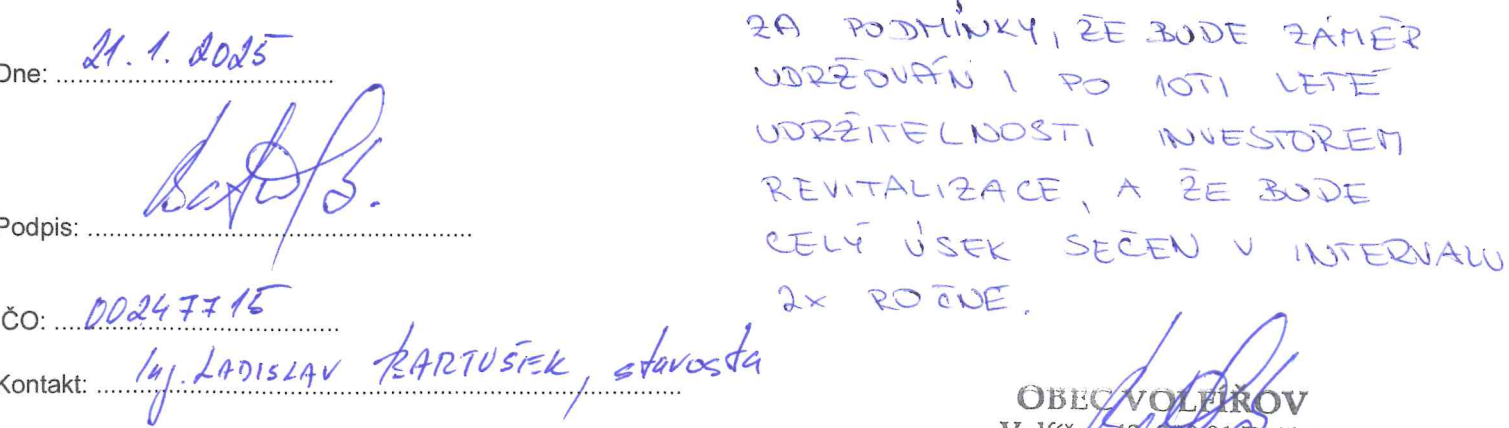 Dne: 21. 1. 2025
Podpis:
ČO: 00247715
Kontakt: Ing. LADISLAV BARTUŠEK, starosta
ZA PODMÍNKY, ŽE BUDE ZÁMĚR
UDRŽOVÁN I PO 10TI LETÉ
UDRŽITELNOSTI INVESTOREM
REVITALIZACE, A ŽE BUDE
CELÝ ÚSEK SEČEN V INTERVALU
2x ROČNĚ.
OBEC VOLFÍŘOV